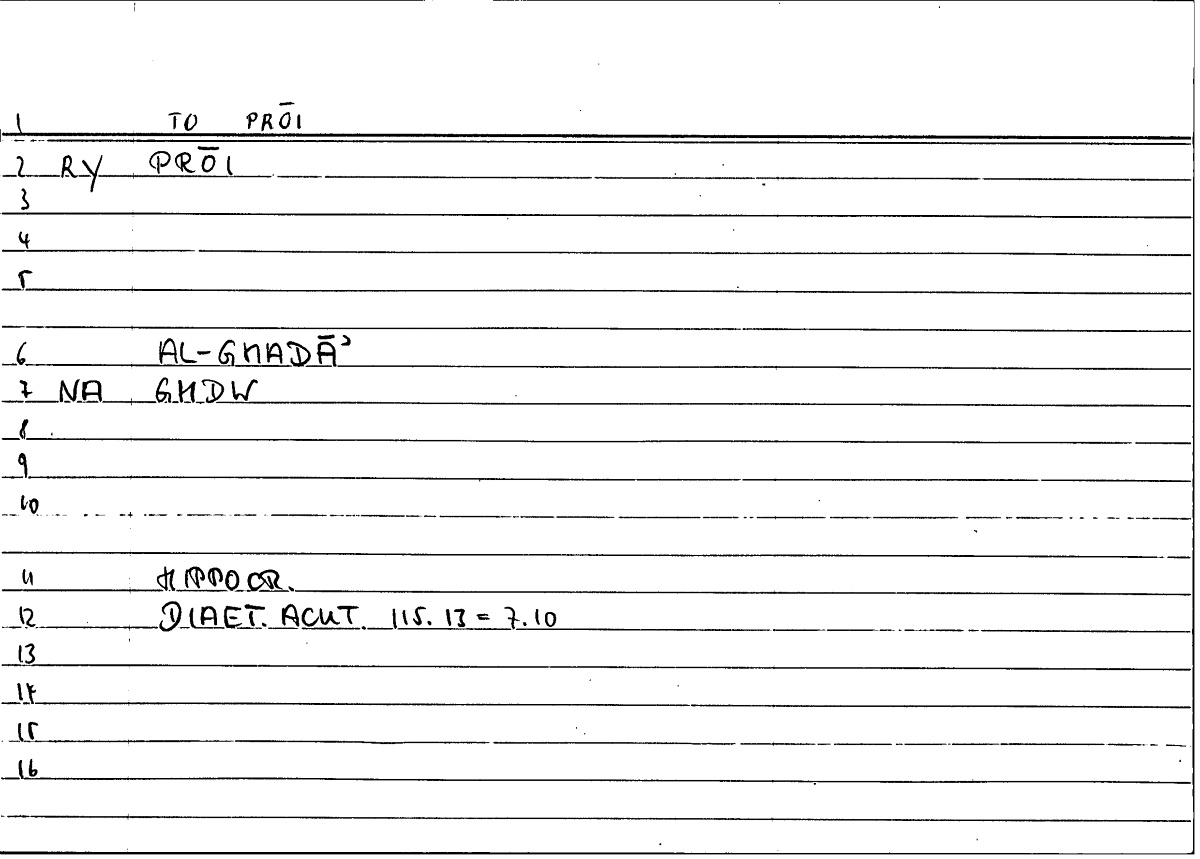 1 TO PRŌI
2 RY PRŌI
3
4
5
6 AL-GHADĀʾ
7 NA GHDW
8
9
10
11 HIPPOCR.
12 DIAET. ACUT. 115. 13 = 7.10
13
14
15
16